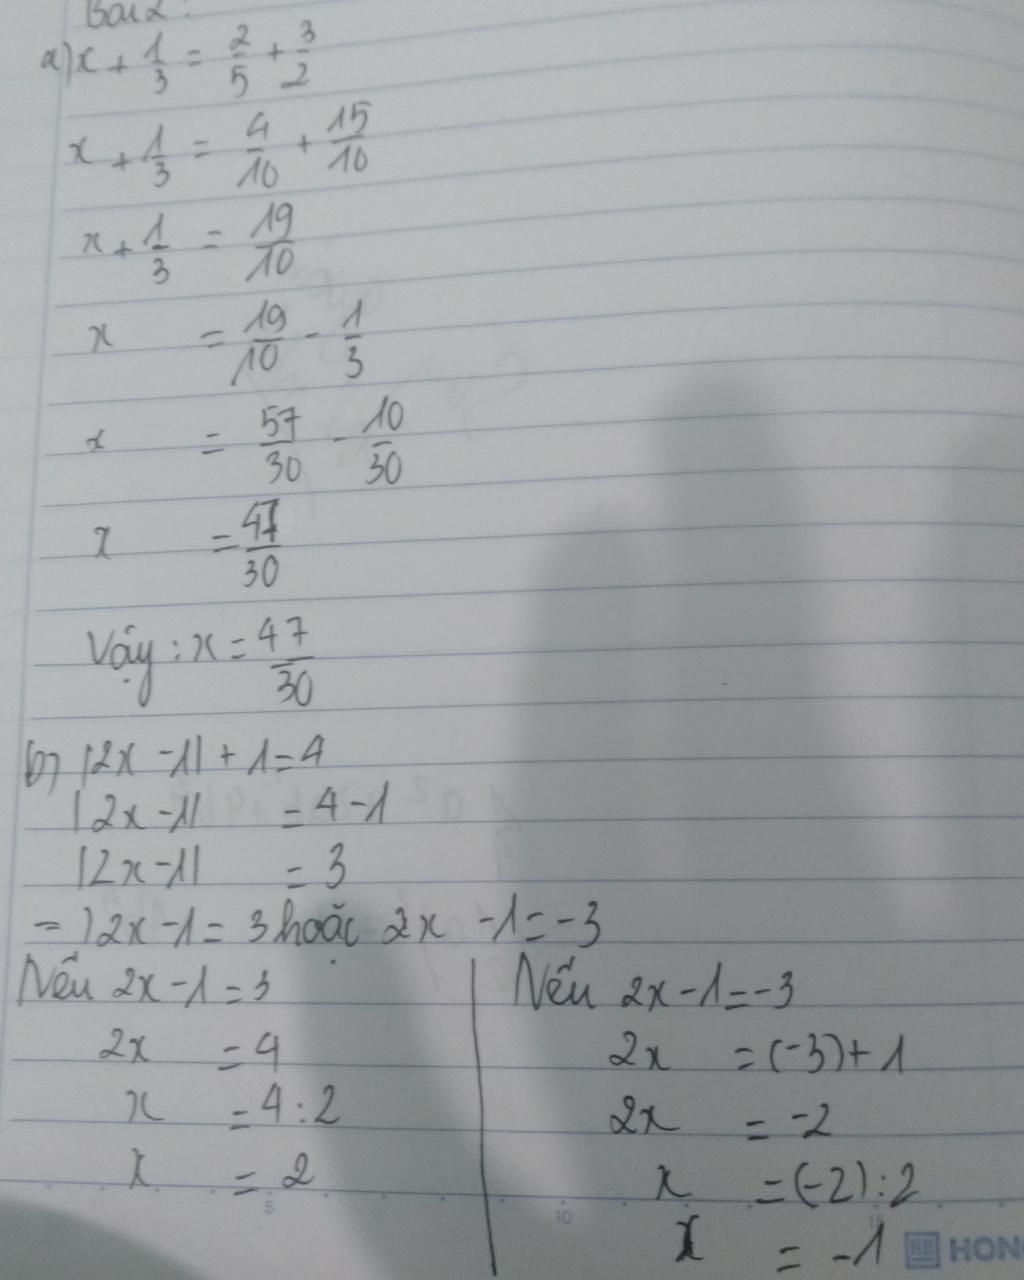 Bài 2:
a) x + 1/3 = 2/5 + 3/2
x + 1/3 = 4/10 + 15/10
x + 1/3 = 19/10
x = 19/10 - 1/3
x = 57/30 - 10/30
x = 47/30
Vậy : x = 47/30
b) |2x - 1| + 1 = 4
|2x - 1| = 4 - 1
|2x - 1| = 3
=) 2x - 1 = 3 hoặc 2x - 1 = -3
Nếu 2x - 1 = 3
2x = 4
x = 4 : 2
x = 2
Nếu 2x - 1 = -3
2x = (-3) + 1
2x = -2
x = (-2) : 2
x = -1
5 10 15
HONG